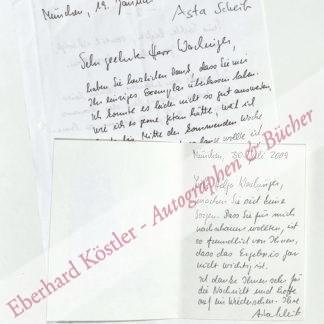 München, 19. Januar
Asta Scheib
Sehr geehrter Herr Wachinger,
haben Sie herzlichen Dank, dass Sie mir
Ihr einziges Exemplar überlassen haben.
Ich konnte es leider nicht so gut auswerten,
wie ich es gerne getan hätte, weil ich
Mitte der kommenden Woche
wollte ich
München, 30. Juli 2009
Wachinger,
machen Sie sich keine
Sorgen. Dass Sie für mich
nachschauen wollten, ist
so freundlich von Ihnen,
dass das Ergebnis gar
nicht wichtig ist.
Ich danke Ihnen sehr für
die Nachricht und hoffe
auf ein Wiedersehen. Ihre
Asta Scheib
Eberhard Köstler - Autographen & Bücher